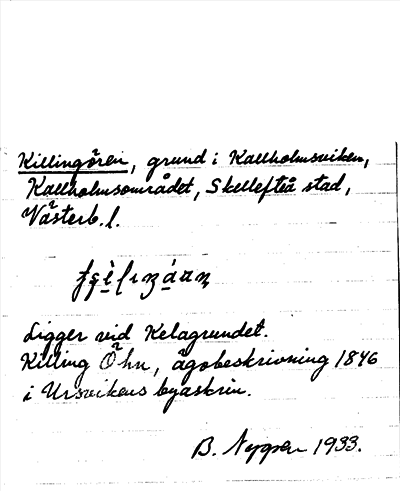 Killingören, grund i Kallholmsviken,
Kallholmsområdet, Skellefteå stad,
Västerb. l.
Ligger vid Kelagrundet.
Killing Öhn, ägobeskrivning 1846
i Ursvikens byaskrin.
B. 1933.